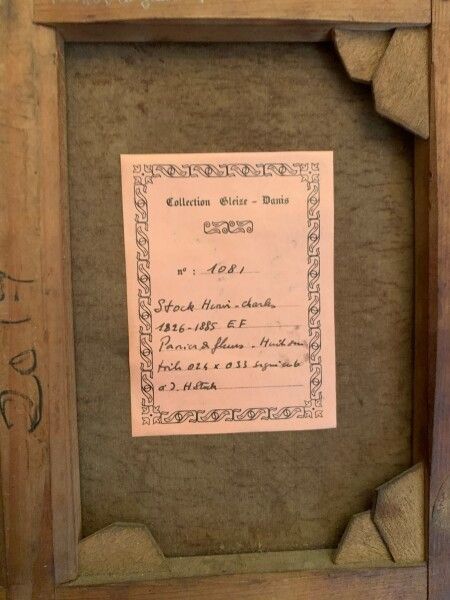 Collection Gleize - Danis
n° : 1081
Stock Henri-charles
1826-1885 E F
Panier de fleurs - Huile sur
toile 024 x 033 signé en bas
à d. H Stock
2017